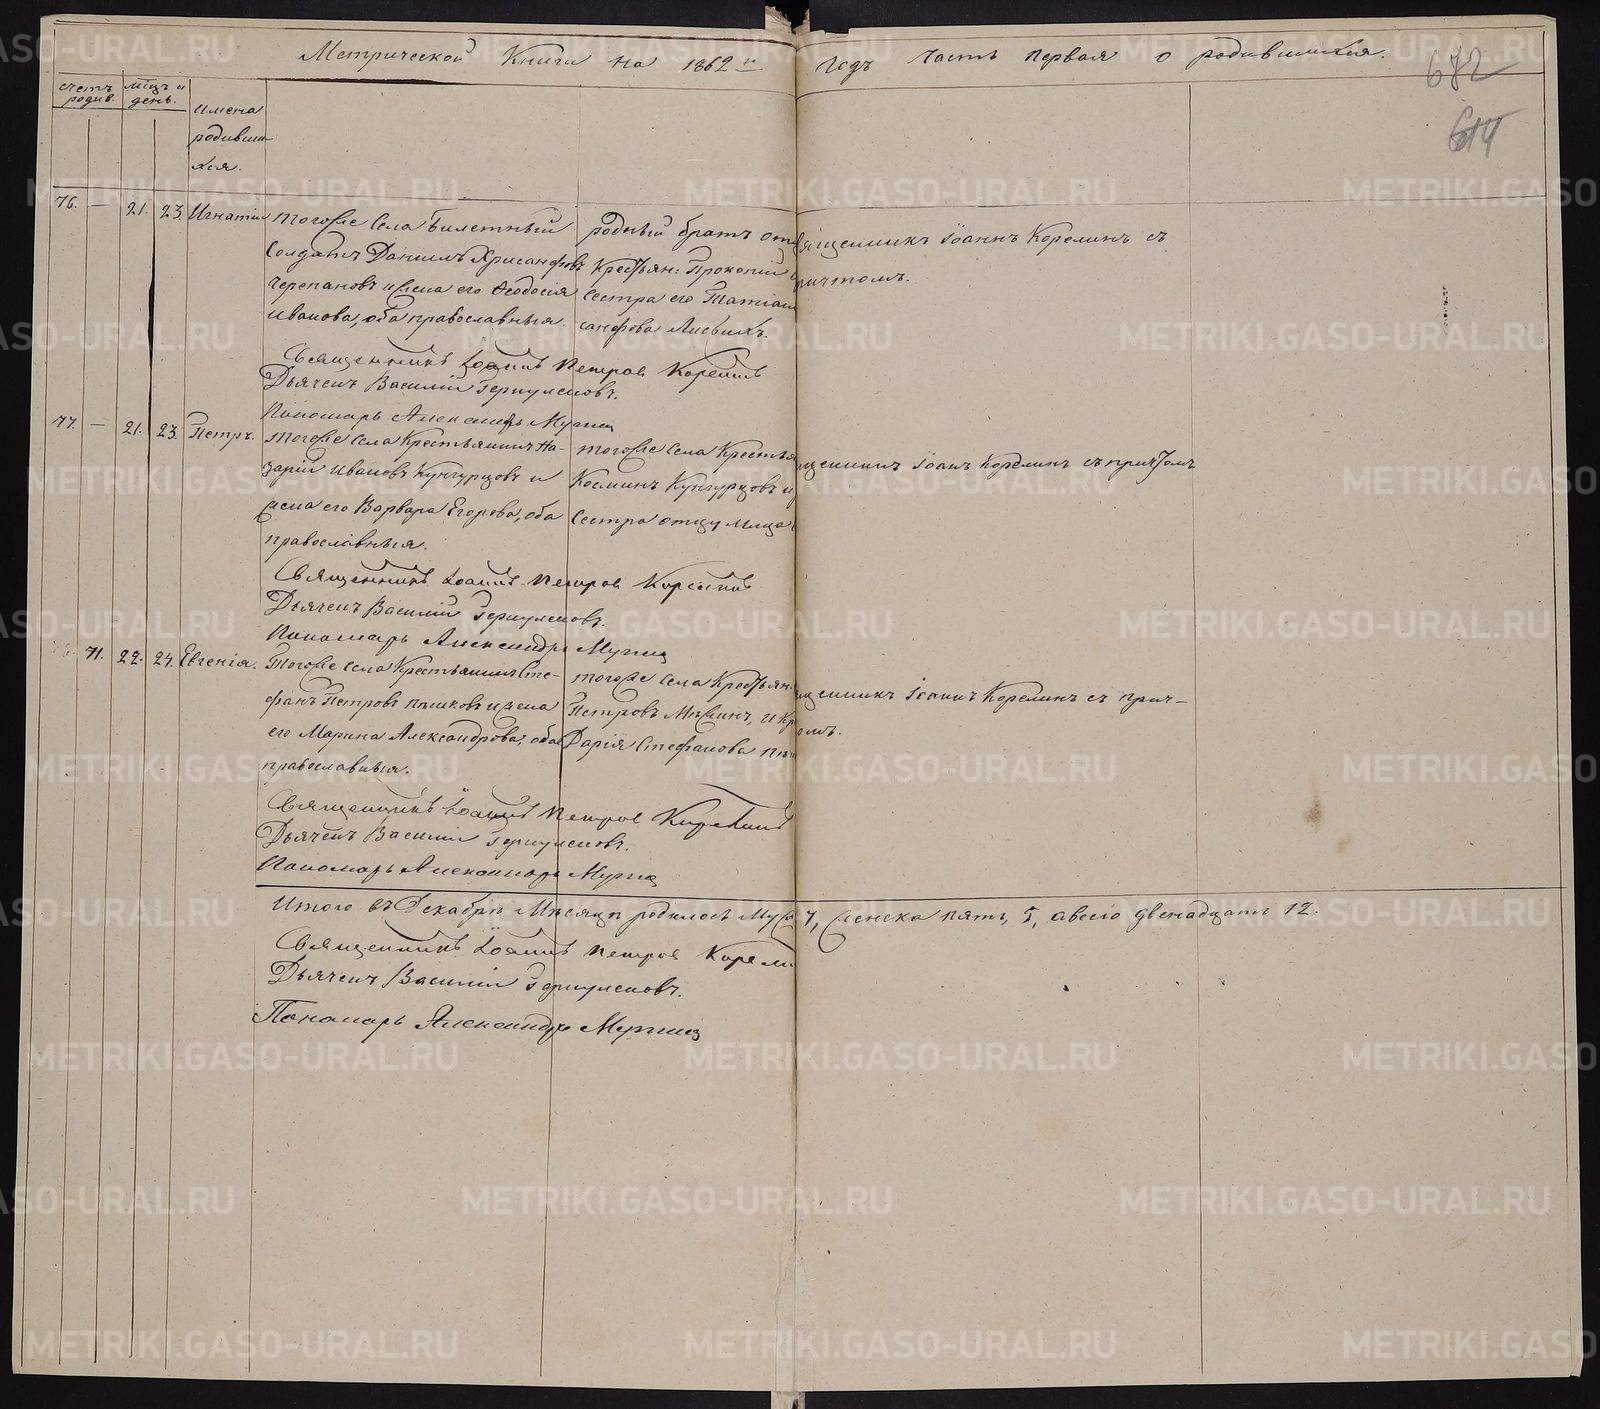 Метрической Книги на 1862й годъ часть первая о родившихся.
682
614
счетъ родив.
мѣц. и день.
имена
родивши
хся.
76. — 21. 23. Игнатій
тогоже села билетный
солдатъ Данилъ Хрисанфовъ
Черепановъ и жена его Ѳеодосія
Иванова, оба православныя.
родный братъ отц
Крестьян: Прокопій
сестра его Татіан
санфова
священникъ Іоаннъ Корелинъ съ
причтомъ.
Священникъ Іоаннъ Петров Корелинъ
Дьячекъ Василій Геркулесовъ.
Пономарь Александръ Мугинъ
77. — 21. 23. Петръ.
тогоже села Крестьянинъ На-
зарій Ивановъ Кунгурцовъ и
жена его Варвара Егорова, оба
православныя.
тогоже села Крестья
Косминъ Кунгурцовъ и
сестра отцу млада
щенникъ Іоанъ Корелинъ съ причтомъ
Священникъ Іоаннъ Петров Корелинъ
Дьячекъ Василій Геркулесовъ.
Пономарь Александръ Мугинъ
71. 22. 24. Евгенія.
Тогоже села Крестьянинъ Сте-
фанъ Петровъ Пѣшковъ и жена
его Марина Александрова, оба
православныя.
тогоже села Крестьян.
Петровъ Мѣзинъ, и кр
Дарія Стефанова Пѣ
щенникъ Іоаннъ Корелинъ съ прич-
омъ.
Священникъ Іоаннъ Петров Корелинъ
Дьячекъ Василій Геркулесовъ.
Пономарь Александръ Мугинъ
Итого въ Декабрѣ Мѣсяцѣ родилось Муж 7, женска пять, 5, а всего двенадцать 12.
Священникъ Іоаннъ Петров Корели
Дьячекъ Василій Геркулесовъ.
Пономарь Александръ Мугинъ
METRIKI.GASO-URAL.RU